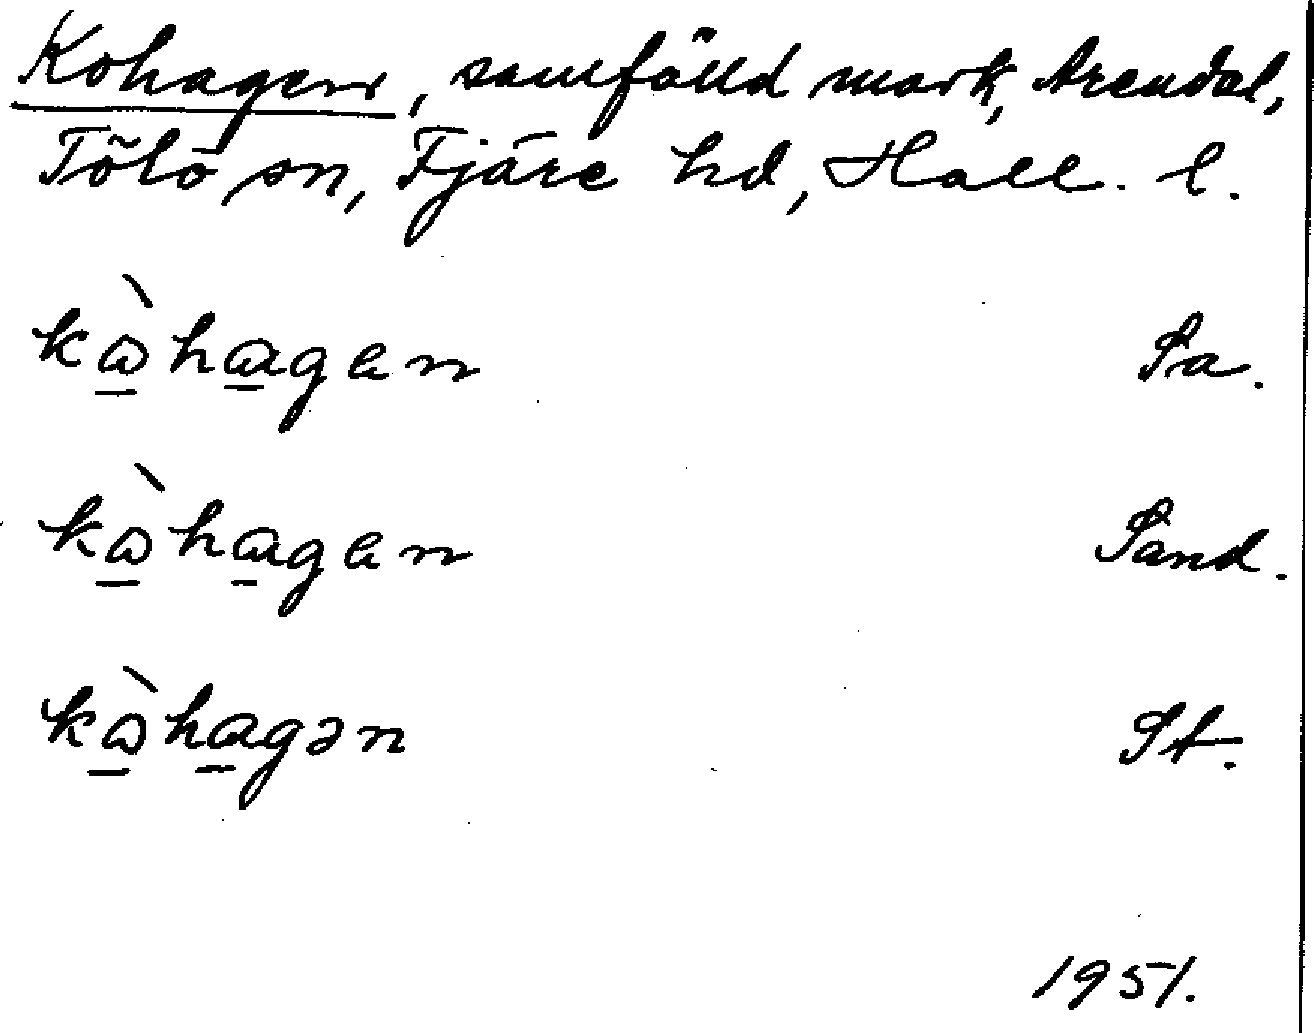 Kohagen, samfälld mark, Arendal,
Tölö sn, Fjäre hd, Hall. l.
kὼhagen Sa.
kὼhagen Sand.
kὼhagən St.
1951.